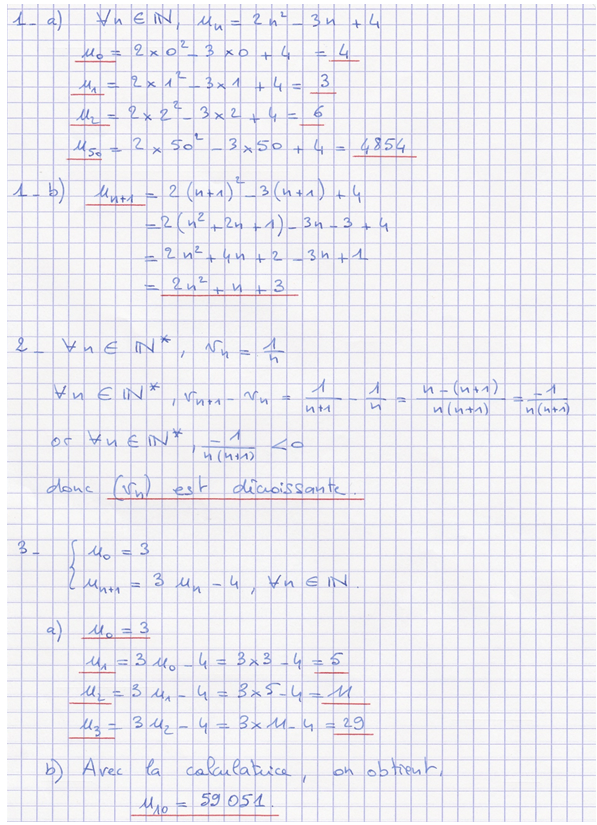 1- a) ∀n ∈ ℕ, uₙ = 2n² - 3n + 4
u₀ = 2×0² - 3×0 + 4 = 4
u₁ = 2×1² - 3×1 + 4 = 3
u₂ = 2×2² - 3×2 + 4 = 6
u₅₀ = 2×50² - 3×50 + 4 = 4854
1- b) uₙ₊₁ = 2(n+1)² - 3(n+1) + 4
= 2(n² + 2n + 1) - 3n - 3 + 4
= 2n² + 4n + 2 - 3n + 1
= 2n² + n + 3
2- ∀n ∈ ℕ*, vₙ = 1/n
∀n ∈ ℕ*, vₙ₊₁ - vₙ = 1/(n+1) - 1/n = (n-(n+1))/(n(n+1)) = -1/(n(n+1))
or ∀n ∈ ℕ*, -1/(n(n+1)) < 0
donc (vₙ) est décroissante.
3- { u₀ = 3
uₙ₊₁ = 3uₙ - 4, ∀n ∈ ℕ.
a) u₀ = 3
u₁ = 3u₀ - 4 = 3×3 - 4 = 5
u₂ = 3u₁ - 4 = 3×5 - 4 = 11
u₃ = 3u₂ - 4 = 3×11 - 4 = 29
b) Avec la calculatrice, on obtient,
u₁₀ = 59 051.